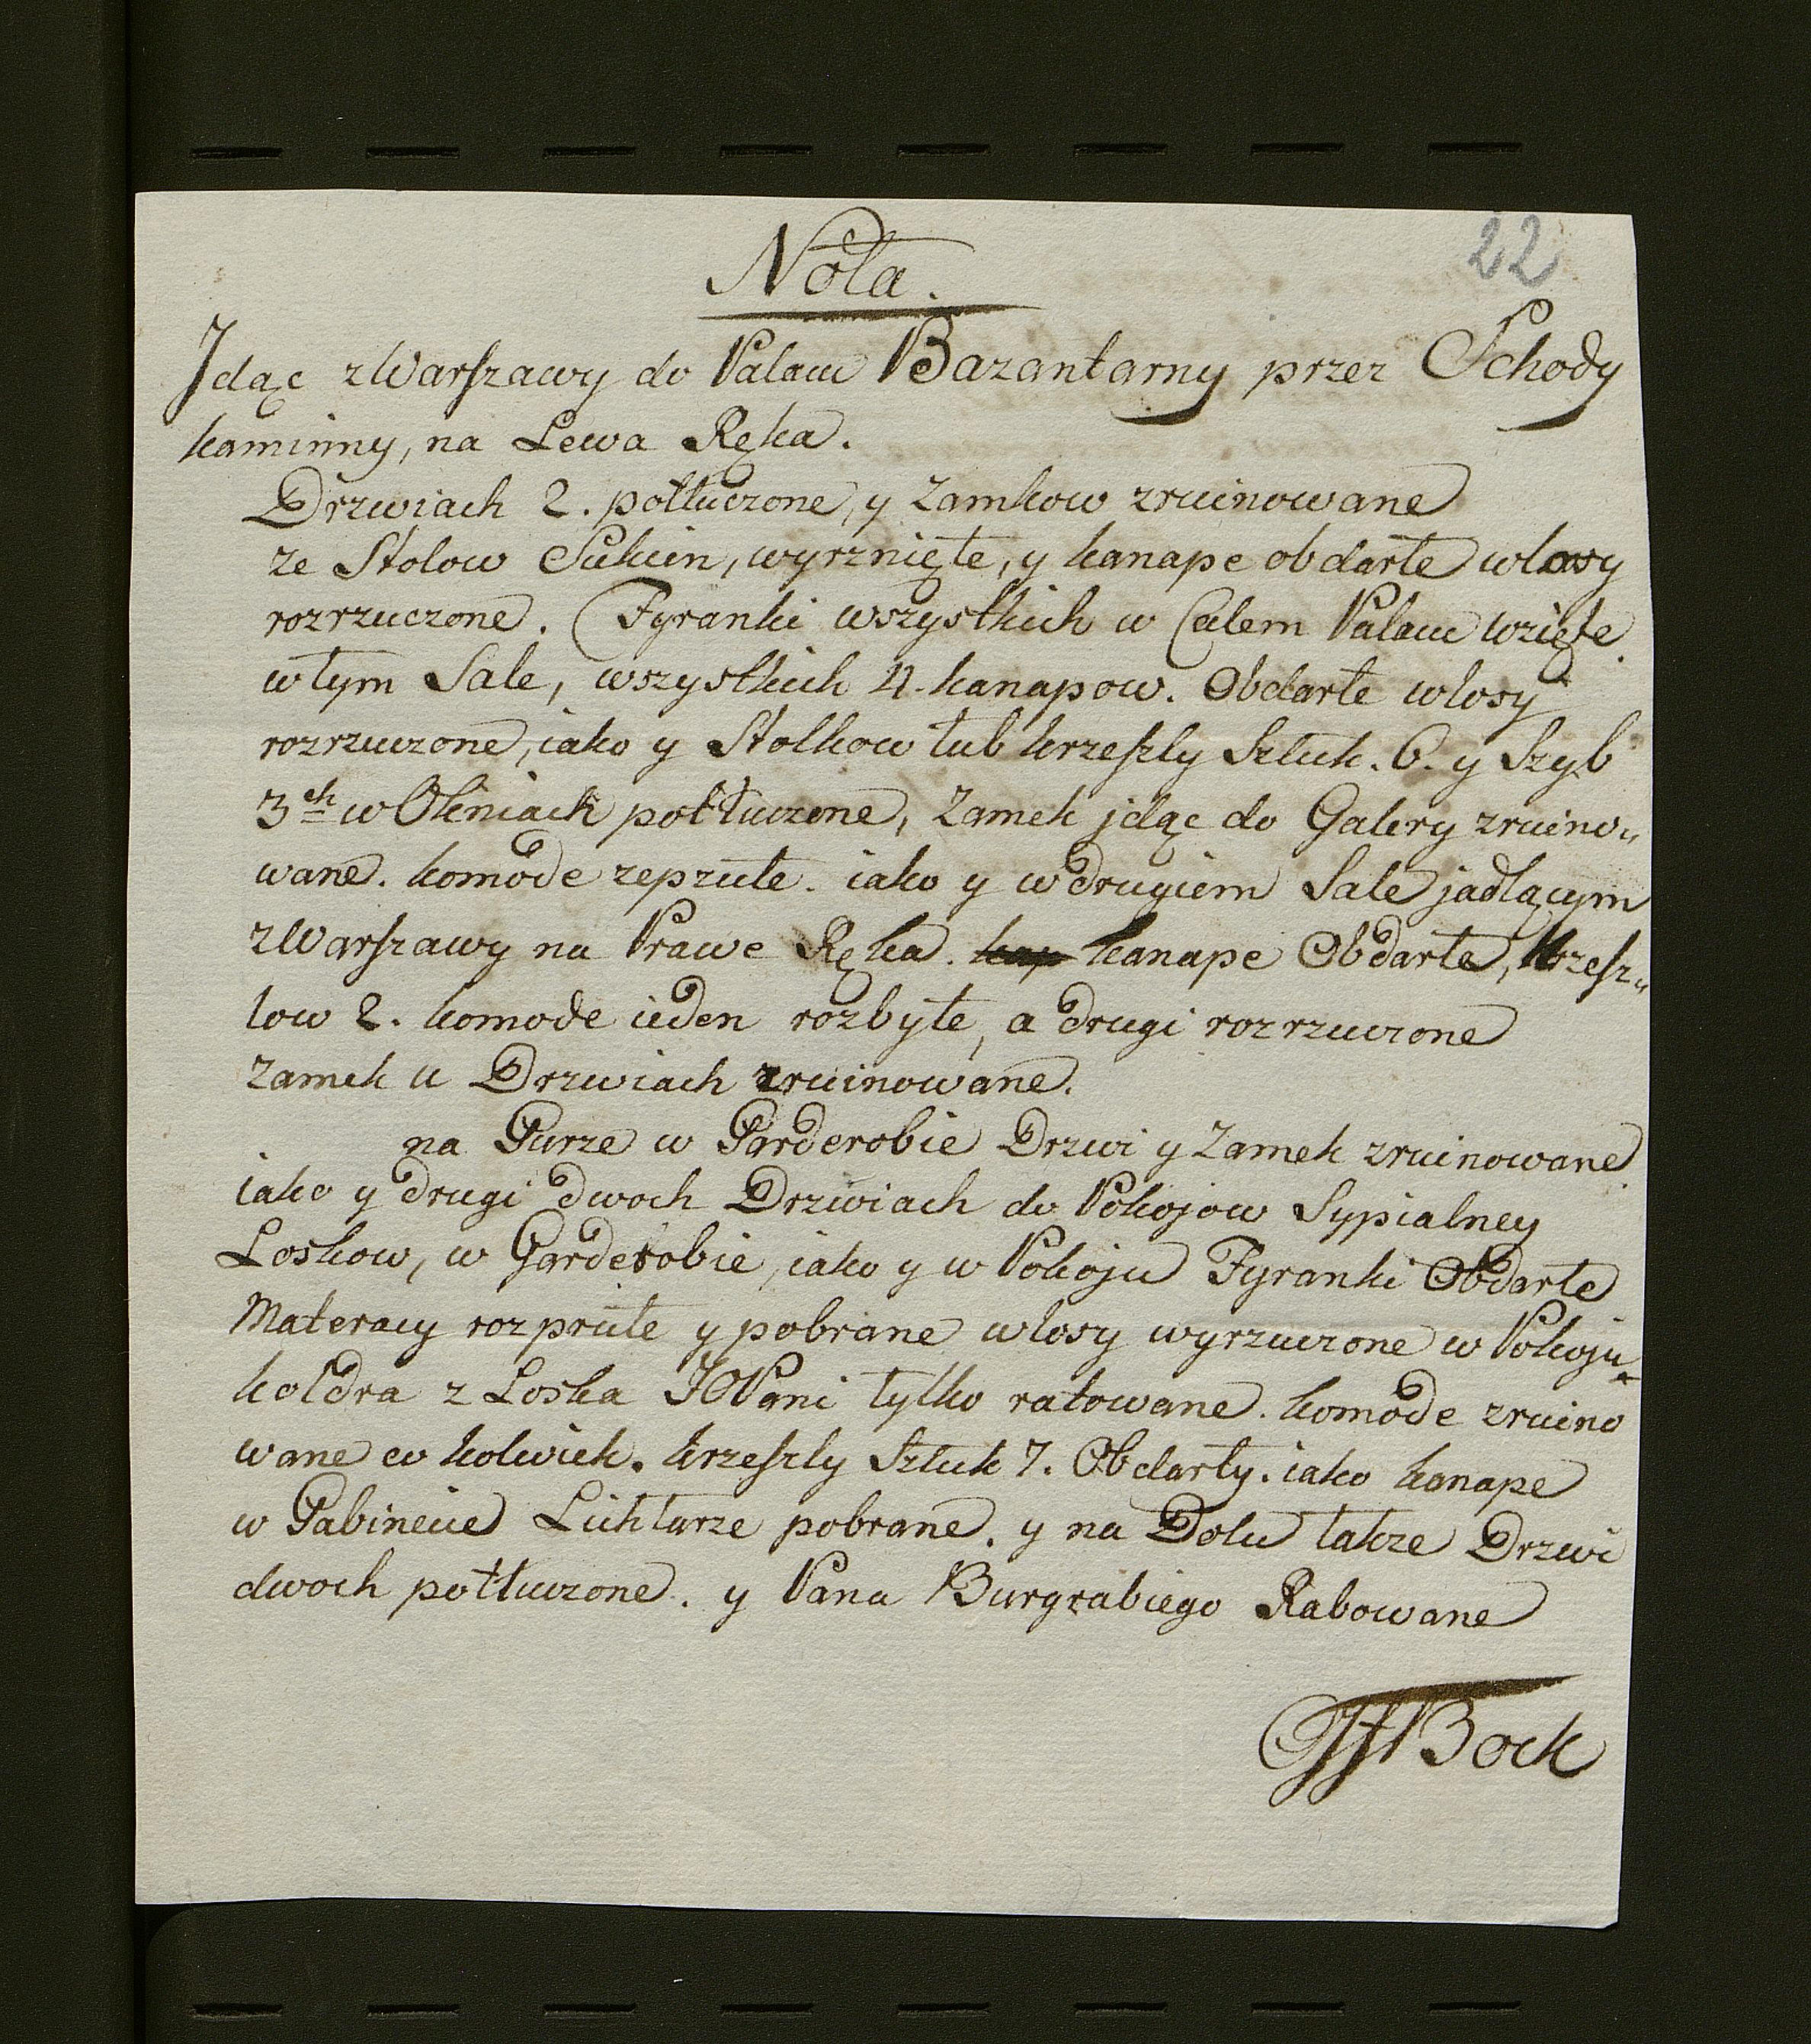 22
Nota.
Jdąc z Warszawy do Palacu Bazantarny przez Schody
kaminny, na Lewa Ręka.
Drzwiach 2. pottuczone, y Zamkow zruinowane
ze Stolow Sukien, wyrznięte, y kanape obdarte wlosy
rozrzuczone. Fyranki wszystkich w Calem Palacu wzięte.
w tym Sale, wszystkich 4. kanapow. Obdarte wlosy
rozrzuczone, iako y Stolkow lub krzeszly Sztuk. 6. y Szyb
3ch w Okniach pottuczone, Zamek jdąc do Galery zruino„
wane. komode zepzute. iako y w drugiem Sale jadlącym
z Warszawy na Prawe Ręka. kanape Obdarte, krzesz„
low 2. komode ieden rozbyte, a drugi rozrzuczone
Zamek u Drzwiach zruinowane.
na Gurze w Garderobie Drzwi y Zamek zruinowane
iako y drugi dwoch Drzwiach do Pokojow Sypialney
Loskow, w Garderobie, iako y w Pokoju Fyranki Obdarte
Materacy rozprute y pobrane wlosy wyrzuczone w Pokoju
koldra z Loska JOPani tylko ratowane. komode zruino
wane co kolwiek. krzeszly Sztuk 7. Obdarty. iako kanape
w Gabinecie Lichtarze pobrane. y na Dolu takze Drzwi
dwoch pottuczone. y Pana Burgrabiego Rabowane
Bock